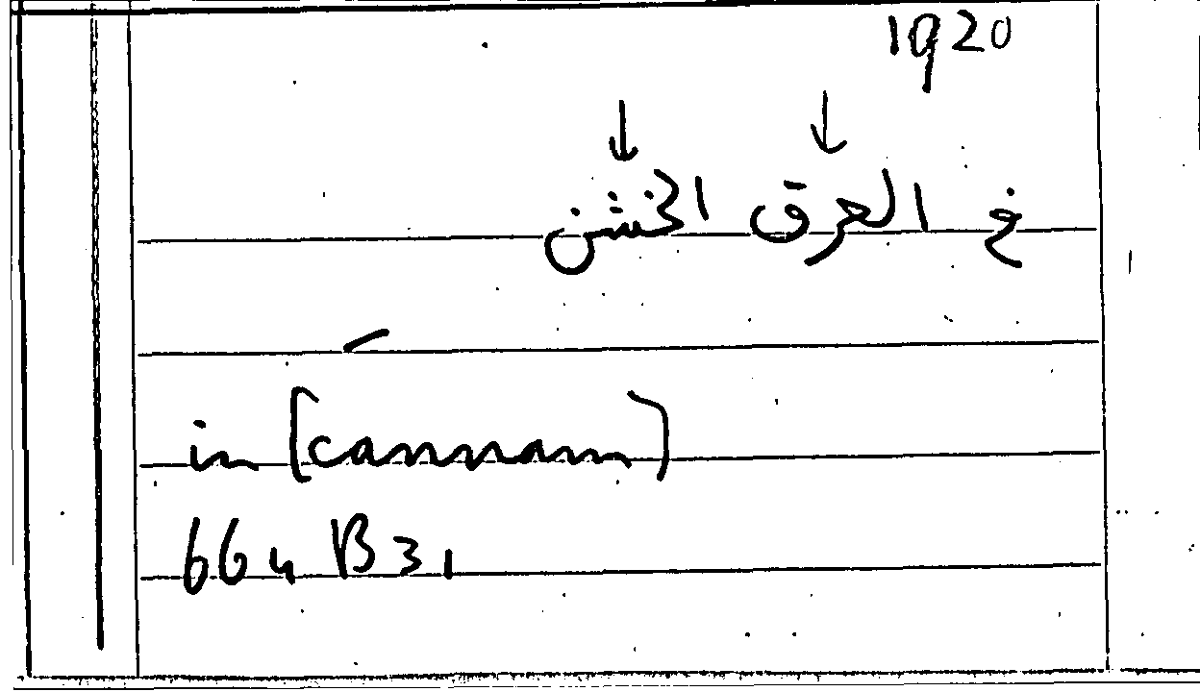 1920
↓ ↓
خ العرق الخشن
in [cannam)
664 B31